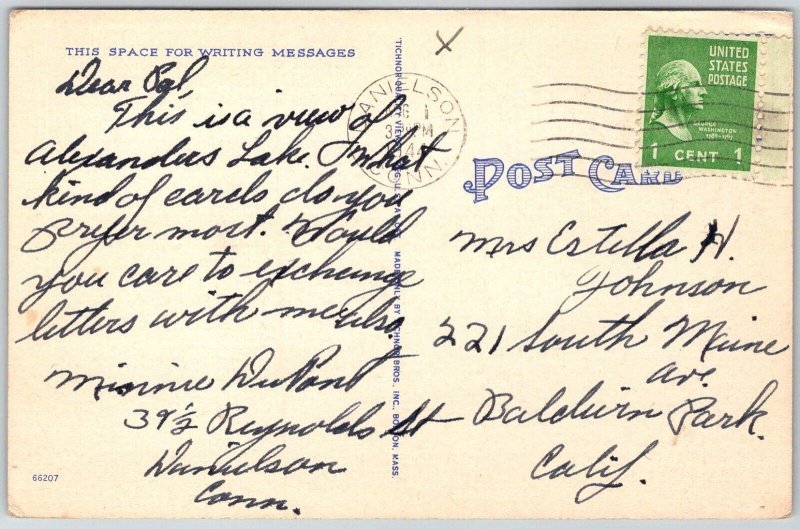 THIS SPACE FOR WRITING MESSAGES
Dear Pal,
This is a view of
Alexanders Lake. What
kind of cards do you
prefer most. Would
you care to exchange
letters with me also.
Minnie DuPont
39½ Reynolds St
Danielson
Conn.
66207
DANIELSON
1
PM
CONN.
UNITED
STATES
POSTAGE
GEORGE
WASHINGTON
1 CENT 1
POST CARD
Mrs Estella H.
Johnson
221 South Maine
ave.
Baldwin Park.
Calif.
MADE ONLY BY TICHNOR BROS., INC., BOSTON, MASS.